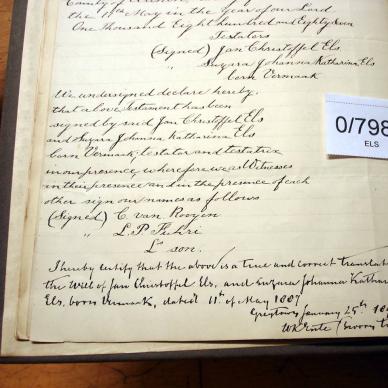 County of
the 11th May in the Year of our Lord
One thousand Eight hundred and Eighty Seven
Testators
(Signed) Jan Christoffel Els.
" Suzara Johanna Katharina Els
born Vermaak
We undersigned declare hereby
that above testament has been
signed by said Jan Christoffel Els
and Suzara Johanna Katharina Els
born Vermaak, testator and testatrix
in our presence, wherefore we as Witnesses
in their presence and in the presence of each
other sign our names as follows
(Signed) C. van Rooyen
" L. P. Fehri
L" son.
I hereby certify that the above is a true and correct translat
the Will of Jan Christoffel Els. and Suzara Johanna Kathar
Els. born Vermaak, dated 11th of May 1887
Greytown January 25th
(Sworn
0/798
ELS